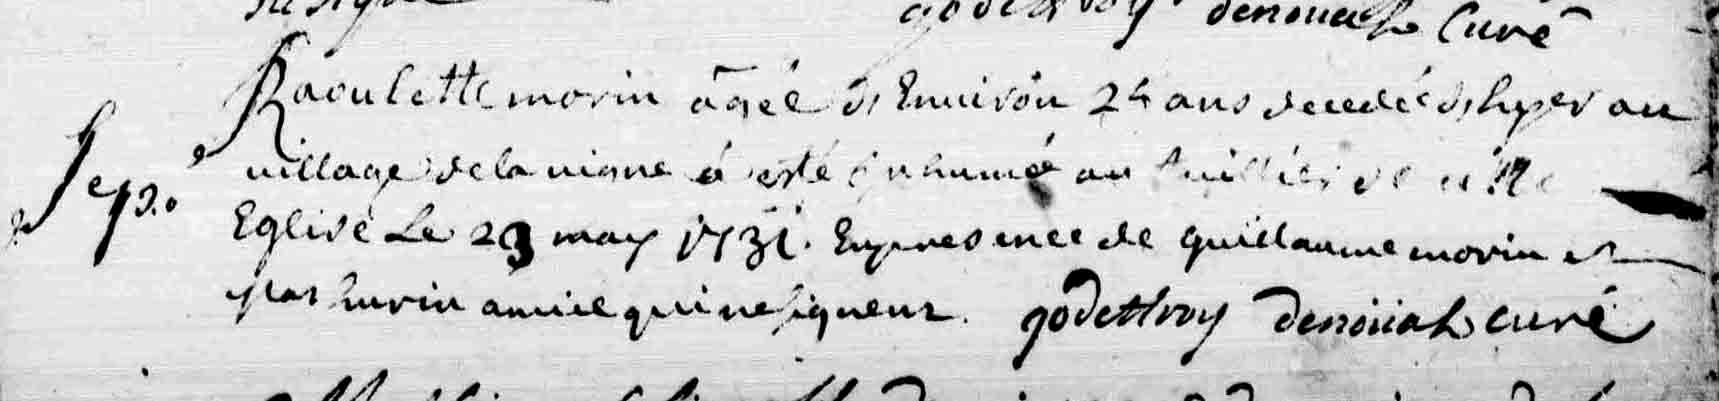 godeffroy denoual Curé
Raoulette morin âgée d'Environ 24 ans decedée d'hyer au
village de la vigne á esté Inhumée au
Sep.
Eglise Le 23 may 1731. En presence de guillaume morin et
amice qui ne signent. godeffroy denoüal curé